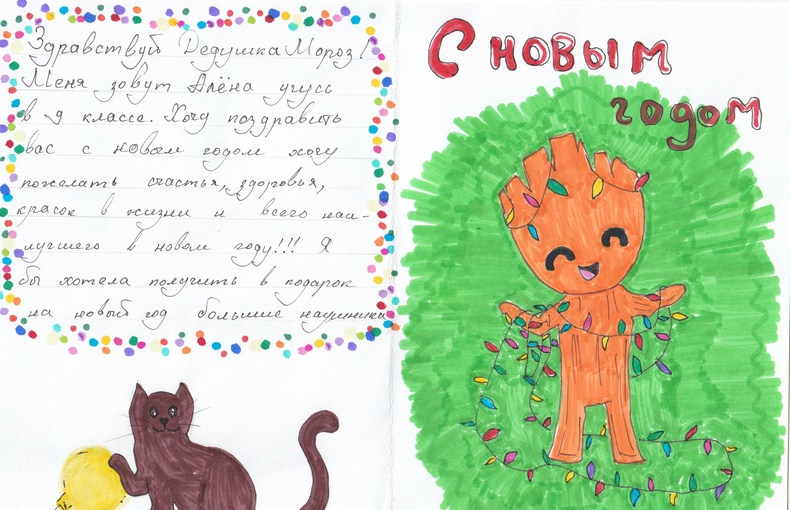 Здравствуй Дедушка Мороз!
Меня зовут Алёна учусь
в 9 классе. Хочу поздравить
вас с новым годом хочу
пожелать счастья, здоровья,
красок в жизни и всего наи-
лучшего в новом году!!! Я
бы хотела получить в подарок
на новый год большие наушники
С новым
годом